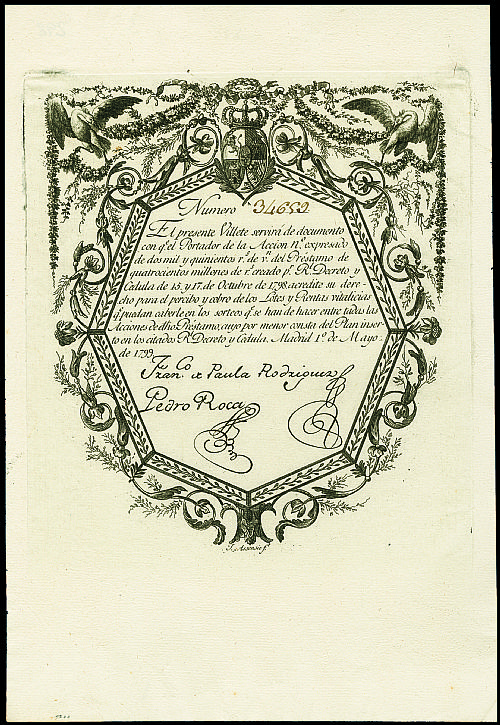 Numero 34659
El presente Villete servirá de documento
con q.e el Portador de la Accion n.o expresado
de dos mil y quinientos r.s de v.n del Préstamo de
quatrocientos millones de r.s creado p.r R.l Decreto y
Cédula de 15, y 17, de Octubre de 1798 acredite su dere-
cho para el percibo y cobro de los Lotes y Rentas vitalicias
q.e puedan caberle en los sorteos q.e se han de hacer entre todas las
Acciones de dho Préstamo, cuyo por menor consta del Plan inser-
to en los citados R.l Decreto y Cédula. Madrid 1.o de Mayo
de 1799.
Fran.co de Paula Rodriguez
Pedro Roca
J. Assensio f.